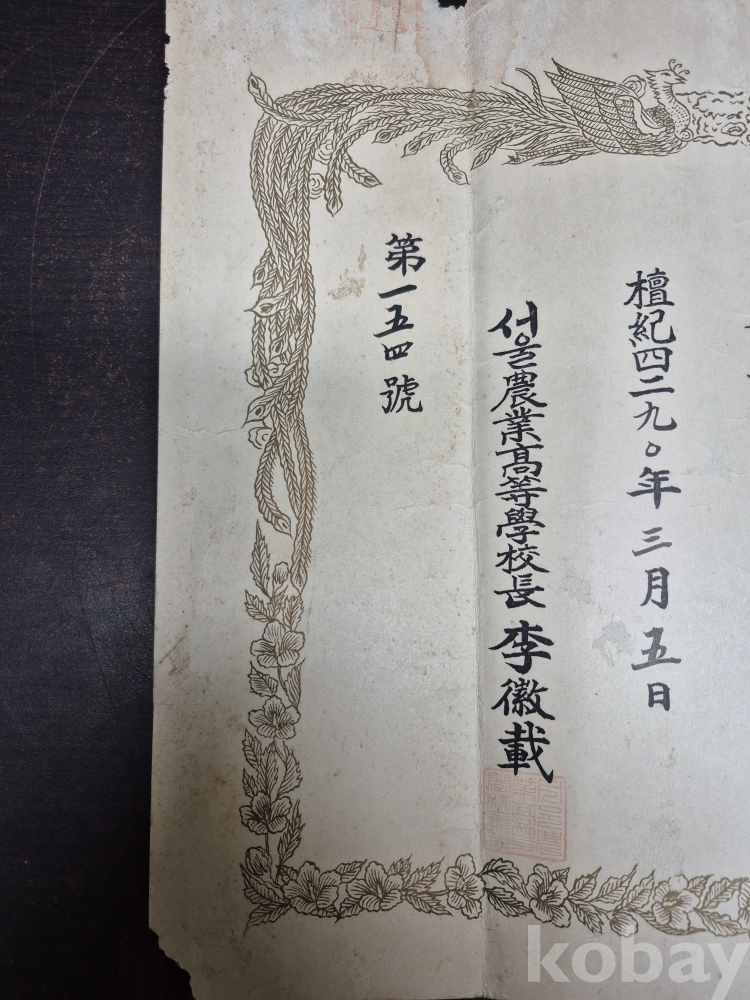 檀紀四二九〇年三月五日
서울農業高等學校長 李徽載
第一五四號
kobay